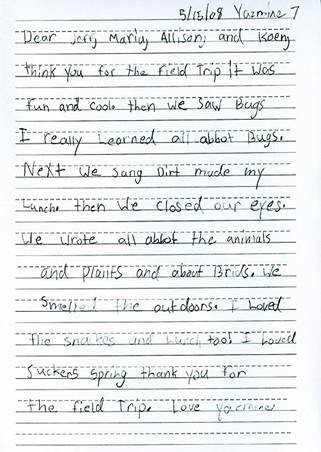 5/15/08 Yazmine 7
Dear jery Maria, Allison, and Koeny
think you for the Field Trip it was
fun and cool. then we saw Bugs
I really Learned all abbot Bugs.
Next we Sang Dirt made my
Lunch. then We closed our eyes.
We wrote all abbot the animals
and plants and about Brids. We
Smelled the outdoors. I Loved
the snackes and Lunch too! I Loved
Suckers spring thank you for
the field Trip. Love yazmine